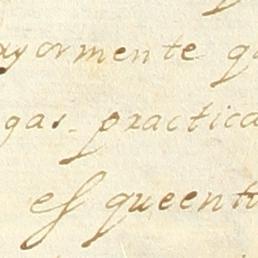 ayormente q
gas. practica
es queent